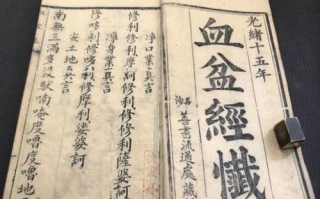 光緒十五年
血盆經懺
沙善書流通處藏
淨口業真言
修利修利摩訶修利修修利薩婆訶
淨身業真言
修哆利修哆利修摩利娑婆訶
安土地真言
南無三滿多沒馱喃唵度嚕度嚕地